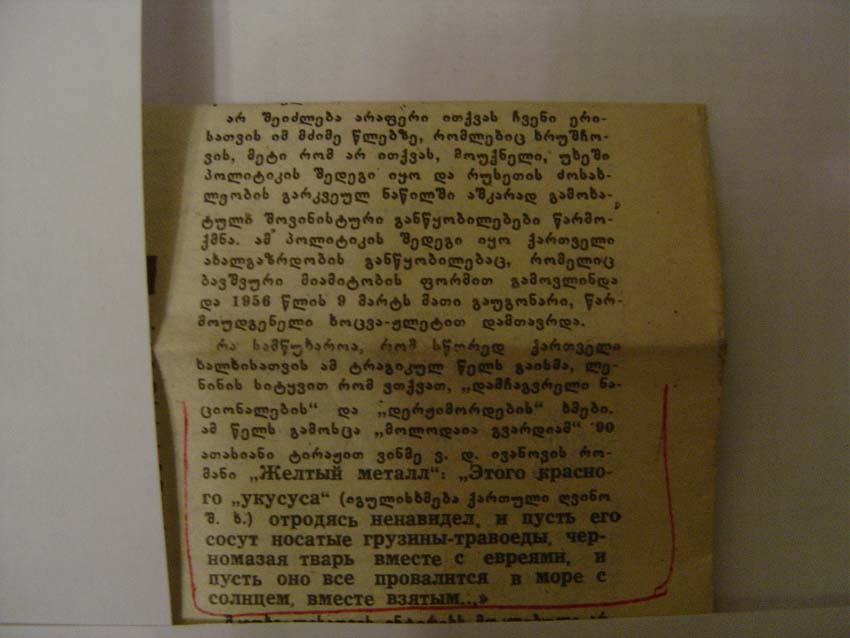 არ შეიძლება არაფერი ითქვას ჩვენი ერი-
სათვის იმ მძიმე წლებზე, რომლებიც ხრუშჩო-
ვის, მეტი რომ არ ითქვას, მოუქნელი, უხეში
პოლიტიკის შედეგი იყო და რუსეთის მოსახ-
ლეობის გარკვეულ ნაწილში აშკარად გამოხა-
ტული შოვინისტური განწყობილებები წარმო-
ქმნა. ამ პოლიტიკის შედეგი იყო ქართველი
ახალგაზრდობის განწყობილებაც, რომელიც
ბავშვური მიამიტობის ფორმით გამოვლინდა
და 1956 წლის 9 მარტს მათი გაუგონარი, წარ-
მოუდგენელი ხოცვა-ჟლეტით დამთავრდა.
რა სამწუხაროა, რომ სწორედ ქართველი
ხალხისათვის ამ ტრაგიკულ წელს გაისმა, ლე-
ნინის სიტყვით რომ ვთქვათ, „დამჩაგვრელი ნა-
ციონალების“ და „დერჟიმორდების“ ხმები.
ამ წელს გამოსცა „მოლოდაია გვარდიამ“ 90
ათასიანი ტირაჟით ვინმე ვ. დ. ივანოვის რო-
მანი „Желтый металл“: „Этого красно-
го „укусуса“ (იგულისხმება ქართული ღვინო
შ. ხ.) отродясь ненавидел, и пусть его
сосут носатые грузины-травоеды, чер-
номазая тварь вместе с евреями, и
пусть оно все провалится в море с
солнцем, вместе взятым...»